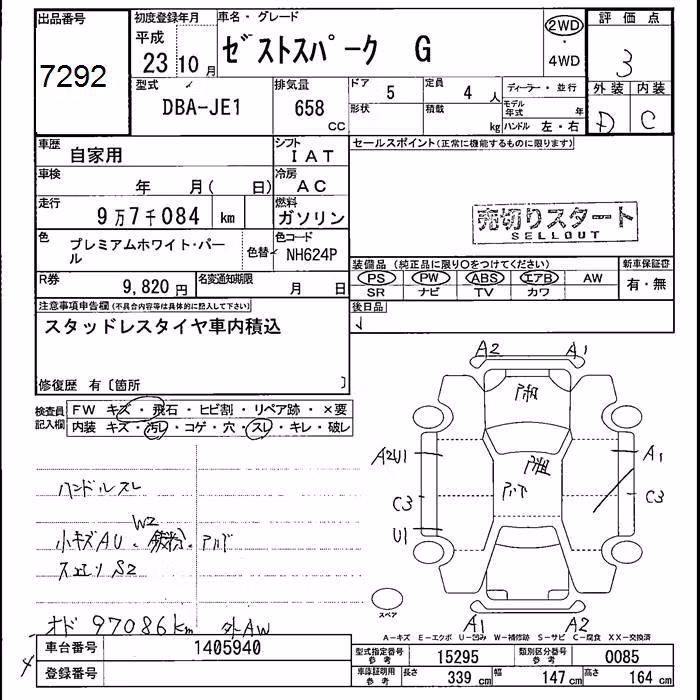 出品番号
7292
初度登録年月
平成
23年10月
車名・グレード
ゼストスパーク G
2WD
・
4WD
評価点
3
外装 内装
D C
型式
DBA-JE1
排気量
658
CC
ドア
5
定員
4人
形状
積載
kg
ディーラー・並行
モデル年式 年
ハンドル 左・右
車歴
自家用
シフト
IAT
車検
年 月( 日)
冷房
AC
走行
9万7千084 km
燃料
ガソリン
色
プレミアムホワイト・パール
色替
色コード
NH624P
R券
9,820円
名変通知期限
月 日
セールスポイント(正常に機能するものに限ります)
売切りスタート
SELLOUT
装備品 (純正品に限り○をつけてください)
PS PW ABS エアB AW
SR ナビ TV カワ
新車保証書
有・無
後日品
注意事項申告欄(不具合内容等は具体的に記入して下さい)
スタッドレスタイヤ車内積込
修復歴 有〔箇所 〕
検査員記入欄
FW キズ・飛石・ヒビ割・リペア跡・×要
内装 キズ・汚レ・コゲ・穴・スレ・キレ・破レ
ハンドルスレ
W2
小キズAU、鉄粉、アルド
S2
オド 97086km 外AW
A2 A1
A2U1 A1
C3 C3
U1
A1 A2
スペア
A−キズ E−エクボ U−凹み W−補修跡 S−サビ C−腐食 XX−交換済
4
車台番号
1405940
登録番号
型式指定番号
参考
15295
類別区分番号
参考
0085
車庫証明用
参考
長さ 339 cm 幅 147 cm 高さ 164 cm